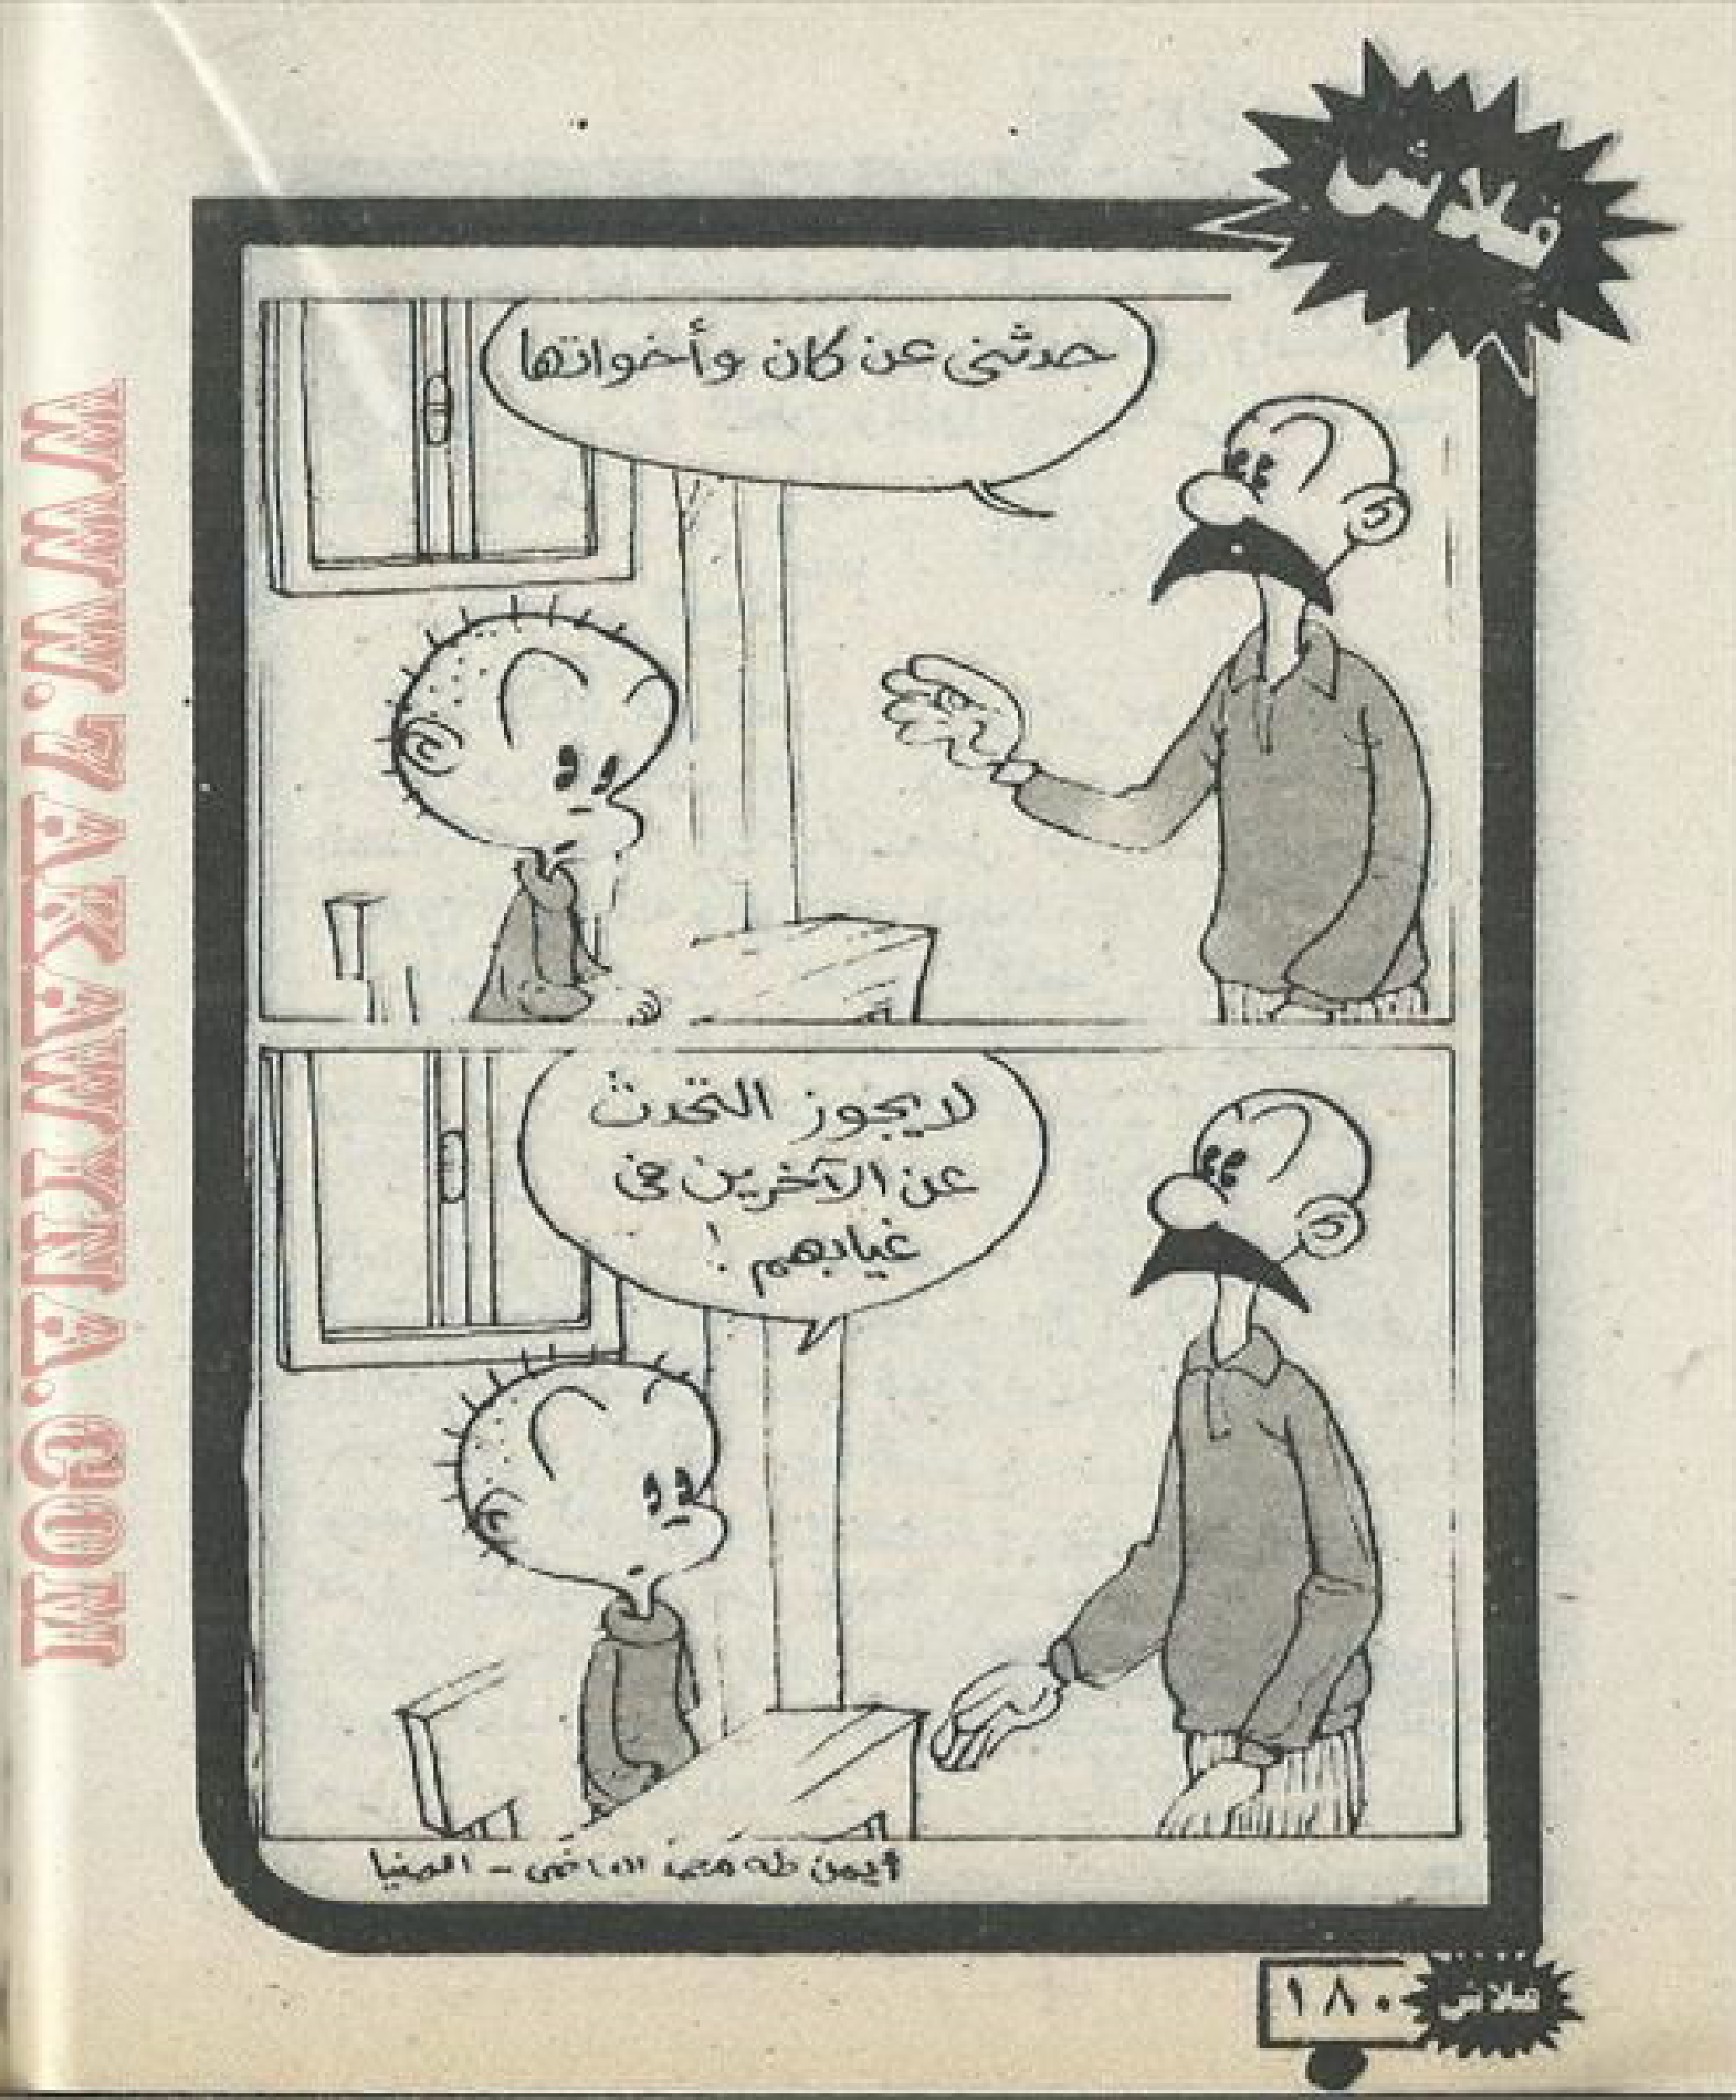 فلاش
حدثنى عن كان وأخواتها
لا يجوز التحدث
عن الآخرين فى
غيابهم !
أيمن طه محمد الراضى - المنيا
١٨٠
فلاش
WWW.7AKAWINA.COM